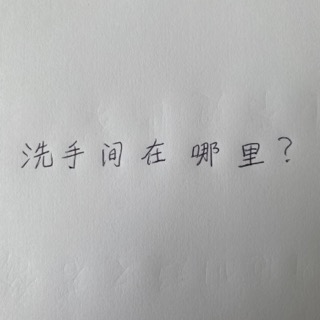 洗手间在哪里?